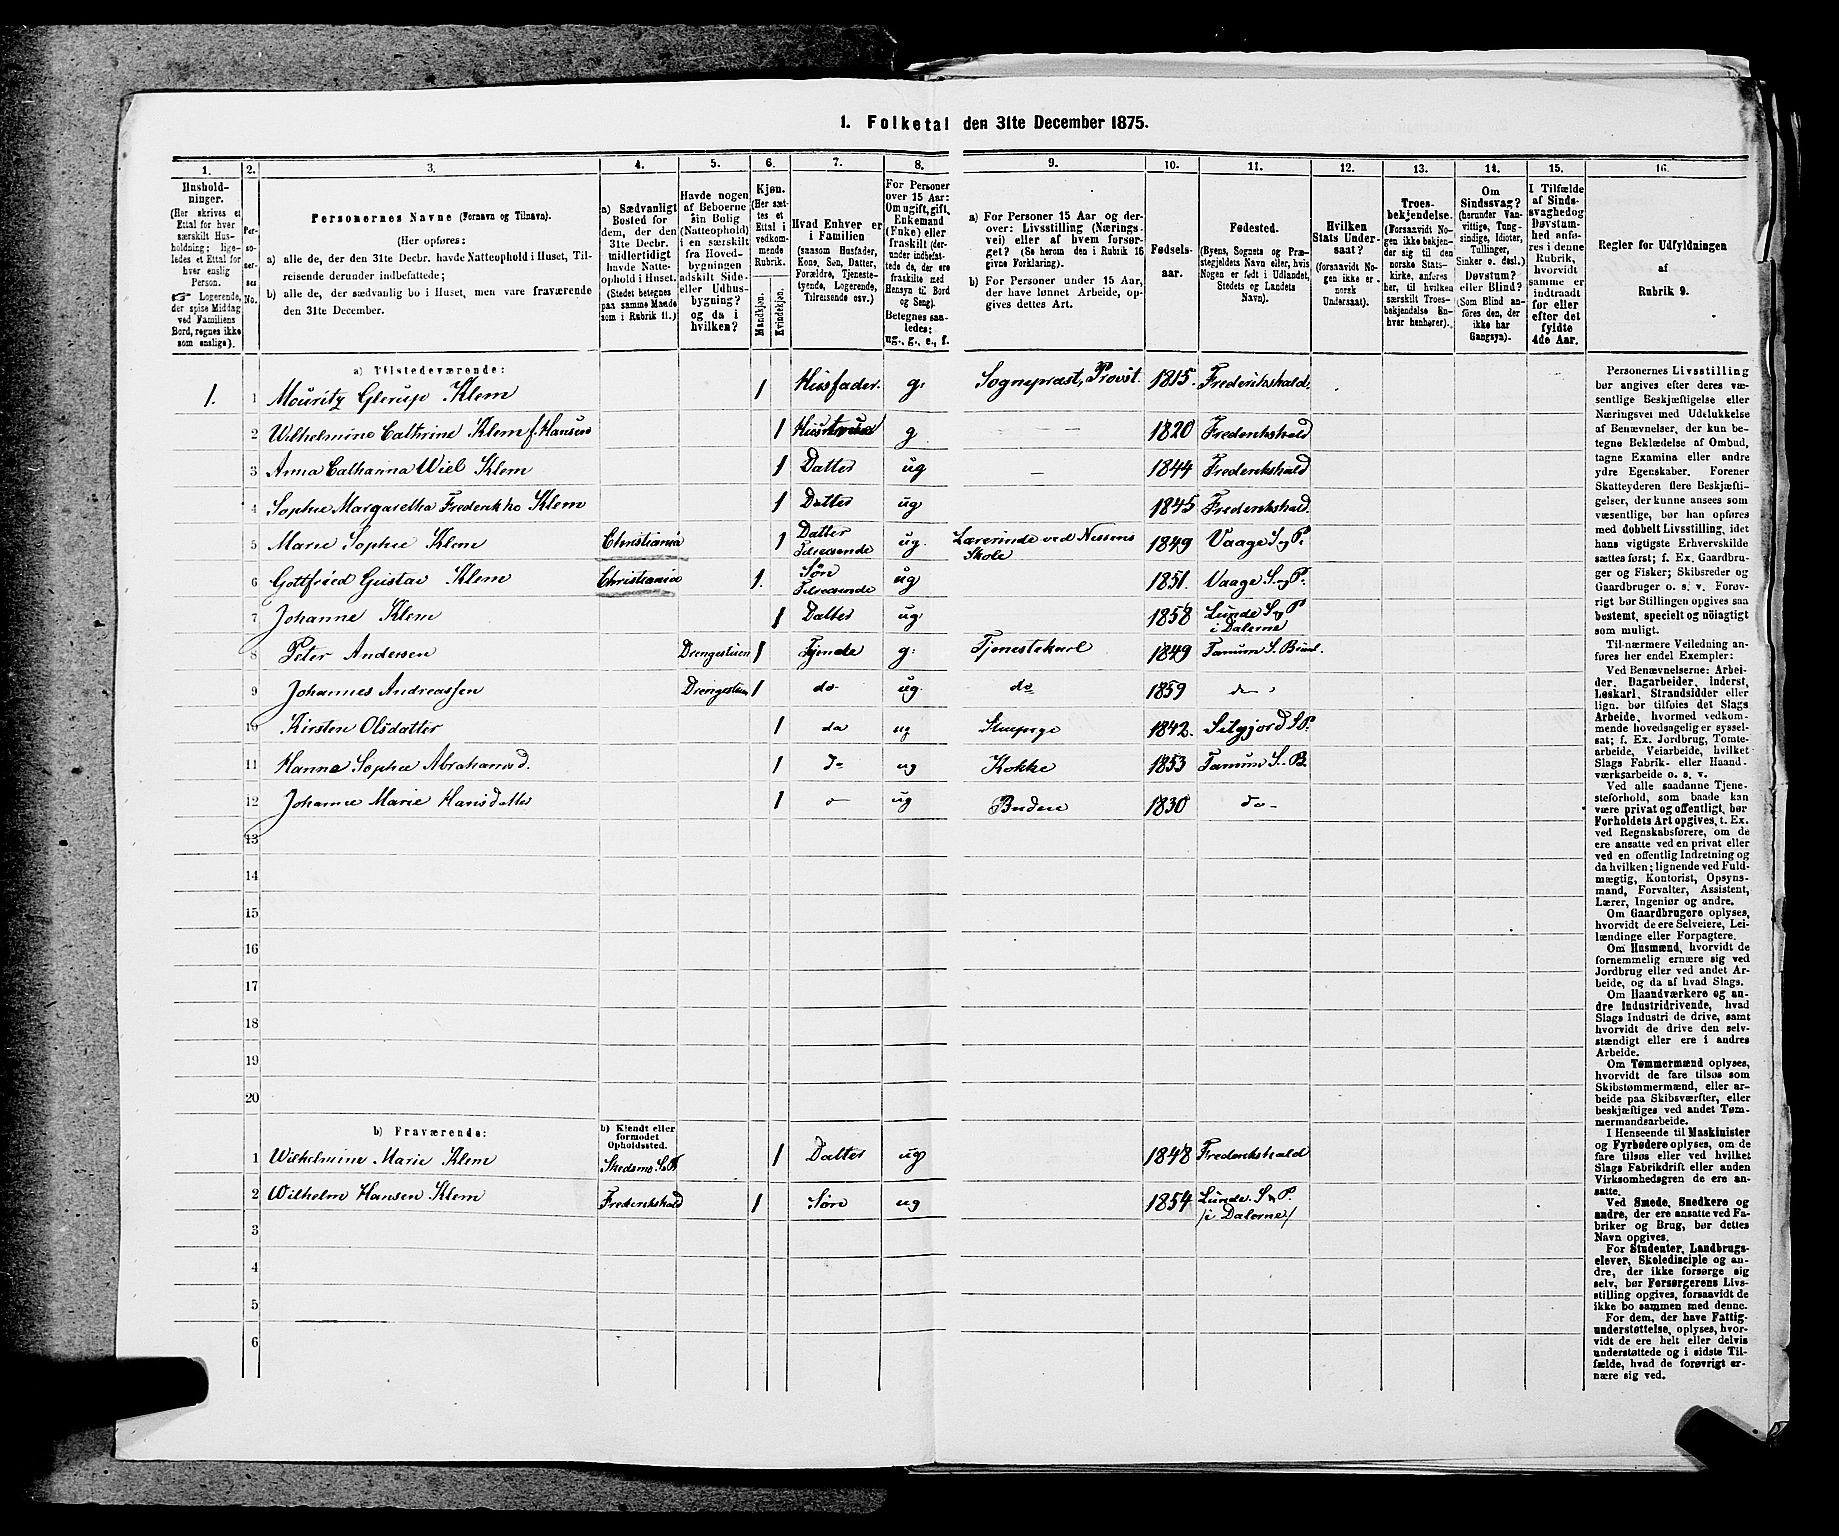 1. Folketal den 31te December 1875.
1. 2. 3. 4. 5. 6. 7. 8. 9. 10. 11. 12. 13. 14. 15. 16.
Husholdninger.
(Her skrives et
Ettal for hver
særskilt Husholdning;
ligeledes et Ettal for
hver enslig
Person.
Logerende,
der spise Middag
ved Familiens
Bord, regnes ikke
som enslige).
Personernes No.
Personernes Navne (Fornavn og Tilnavn).
(Her opføres:
a) alle de, der den 31te Decbr. havde Natteophold i Huset, Tilreisende derunder indbefattede;
b) alle de, der sædvanlig bo i Huset, men vare fraværende
den 31te December.
a) Sædvanligt
Bosted for
dem, der den
31te Decbr.
midlertidigt
havde Natteophold i Huset.
(Stedet betegnes
paa samme Maade
som i Rubrik 11.)
Havde nogen
af Beboerne
sin Bolig
(Natteophold)
i en særskilt
fra Hovedbygningen
adskilt Side-
eller Udhusbygning?
og da i
hvilken?
Kjøn.
(Her sættes et
Ettal i
vedkommende
Rubrik.
Mandkjøn.
Kvindekjøn.
Hvad Enhver er
i Familien
(saasom Husfader,
Kone, Søn, Datter,
Forældre, Tjenestetyende, Logerende,
Tilreisende osv.)
For Personer
over 15 Aar:
Om ugift, gift,
Enkemand
(Enke) eller
fraskilt (derunder indbefattede de, der ere
fraskilte med
Hensyn til Bord
og Seng).
Betegnes saaledes:
ug., g., e., f.
a) For Personer 15 Aar og derover: Livsstilling (Næringsvei) eller af hvem forsørget? (Se herom den i Rubrik 16
givne Forklaring).
b) For Personer under 15 Aar,
der have lønnet Arbeide, opgives dettes Art.
Fødselsaar.
Fødested.
(Byens, Sognets og Præstegjeldets Navn eller, hvis
Nogen er født i Udlandet,
Stedets og Landets
Navn).
Hvilken
Stats Undersaat?
(forsaavidt Nogen ikke er
norsk
Undersaat).
Troesbekjendelse.
(Forsaavidt Nogen ikke bekjender sig til den
norske Statskirke, anføres
her, til hvilken
særskilt Troesbekjendelse Enhver henhører).
Om
Sindssvag?
(herunder Vanvittige, Tungsindige, Idioter,
Tullinger,
Sinker o. desl.).
Døvstum?
eller Blind?
(Som Blind anføres den, der
ikke har
Gangsyn).
I Tilfælde
af Sindssvaghed og
Døvstumhed anføres i denne
Rubrik,
hvorvidt
samme er
indtraadt
før eller
efter det
fyldte
4de Aar.
Regler for Udfyldningen
af
Rubrik 9.
a) Tilstedeværende:
1. 1 Mouritz Glerup Klem 1 Husfader. g: Sognepræst, Provst. 1815. Frederikshald.
2 Wilhelmine Cathrine Klem f. Hansen 1 Hustrue g. — — 1820 Frederikshald
3 Anna Catharina Wiel Klem 1 Datter ug — 1844 Frederikshald
4 Sophie Margaretha Frederikke Klem 1 Datter ug 1845 Frederikshald.
5 Marie Sophie Klem Christiania 1 Datter Tilreisende ug. Lærerinde ved Nissens Skole 1849 Vaage S. og P.
6 Gottfried Gustav Klem Christiania 1. Søn Tilreisende ug 1851. Vaage S. og P.
7 Johanne Klem 1 Datter ug 1858 Lunde S. og P. i Dalerne
8 Peter Andersen Drengestuen 1 Tjende g: Tjenestekarl 1849 Tanum S.
9 Johannes Andreassen Drengestuen 1 do ug. do 1859 do
10 Kirsten Olsdatter 1 do ug Stuepige 1842. Silgjord S. P.
11 Hanne Sophie Abrahamsd. 1 do ug Kokke 1853 Tanum S. B.
12 Johanne Marie Hansdatter 1 o— ug Budeie 1830 do—
13
14
15
16
17
18
19
20
b) Fraværende:
b) Kjendt eller
formodet
Opholdssted.
1 Wilhelmine Marie Klem Skedsmo S. P. 1 Datter ug 1848 Frederikshald
2 Wilhelm Hansen Klem Frederikshald 1 Søn ug 1854 Lunde. S. og P. /i Dalerne/
3
4
5
6
Personernes Livsstilling
bør angives efter deres væsentlige Beskjæftigelse eller
Næringsvei med Udelukkelse
af Benævnelser, der kun betegne Beklædelse af Ombud,
tagne Examina eller andre
ydre Egenskaber. Forener
Skatteyderen flere Beskjæftigelser, der kunne ansees som
væsentlige, bør han opføres
med dobbelt Livsstilling, idet
hans vigtigste Erhvervskilde
sættes først; f. Ex. Gaardbruger og Fisker; Skibsreder og
Gaardbruger o. s. v. Forøvrigt bør Stillingen opgives saa
bestemt, specielt og nøiagtigt
som muligt.
Til nærmere Veiledning anføres her endel Exempler:
Ved Benævnelserne: Arbeider, Dagarbeider, Inderst,
Løskarl, Strandsidder eller
lign. bør tilføies det Slags
Arbeide, hvormed vedkommende hovedsagelig er sysselsat; f. Ex. Jordbrug, Tomtearbeide, Veiarbeide, hvilket
Slags Fabrik- eller Haandværksarbeide o. s. v.
Ved alle saadanne Tjenesteforhold, som baade kan
være privat og offentligt, bør
Forholdets Art opgives, t. Ex.
ved Regnskabsførere, om de
ere ansatte ved en privat eller
ved en offentlig Indretning og
da hvilken; lignende ved Fuldmægtig, Kontorist, Opsynsmand, Forvalter, Assistent,
Lærer, Ingeniør og andre.
Om Gaardbrugere oplyses,
hvorvidt de ere Selveiere, Leilændinge eller Forpagtere.
Om Husmænd, hvorvidt de
fornemmelig ernære sig ved
Jordbrug eller ved andet Arbeide, og da af hvad Slags.
Om Haandværkere og andre Industridrivende, hvad
Slags Industri de drive, samt
hvorvidt de drive den selvstændigt eller ere i andres
Arbeide.
Om Tømmermænd oplyses,
hvorvidt de fare tilsøs som
Skibstømmermænd, eller arbeide paa Skibsværfter, eller
beskjæftiges ved andet Tømmermandsarbeide.
I Henseende til Maskinister
og Fyrbødere oplyses, om de
fare tilsøs eller ved hvilket
Slags Fabrikdrift eller anden
Virksomhedsgren de ere ansatte.
Ved Smede, Snedkere og
andre, der ere ansatte ved Fabriker og Brug, bør dettes
Navn opgives.
For Studenter, Landbrugselever, Skoledisciple og andre, der ikke forsørge sig
selv, bør Forsørgerens Livsstilling opgives, forsaavidt de
ikke bo sammen med denne.
For dem, der have Fattigunderstøttelse, oplyses, hvorvidt de ere helt eller delvis
understøttede og i sidste Tilfælde, hvad de forøvrigt ernære sig ved.